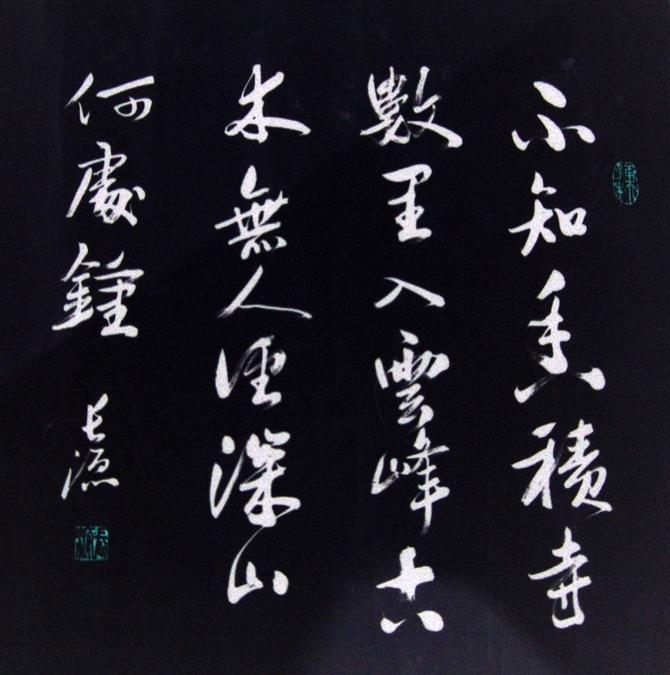 不知香積寺
數里入雲峰古
木無人徑深山
何處鍾
长源